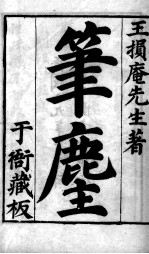 王損庵先生著
筆麈
于衙藏板